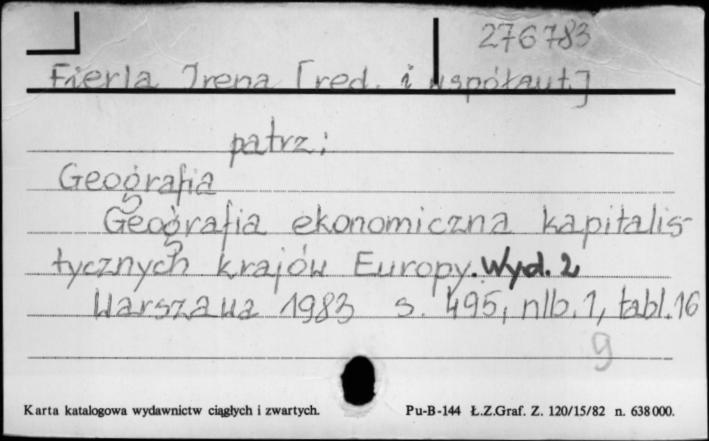 276783
Fierla Irena [red. i współaut.]
patrz:
Geografia
Geografia ekonomiczna kapitalis-
tycznych krajów Europy. Wyd. 2
Warszawa 1983 s. 495, nlb. 1, tabl. 16
9
Karta katalogowa wydawnictw ciągłych i zwartych. Pu-B-144 Ł.Z.Graf. Z. 120/15/82 n. 638000.